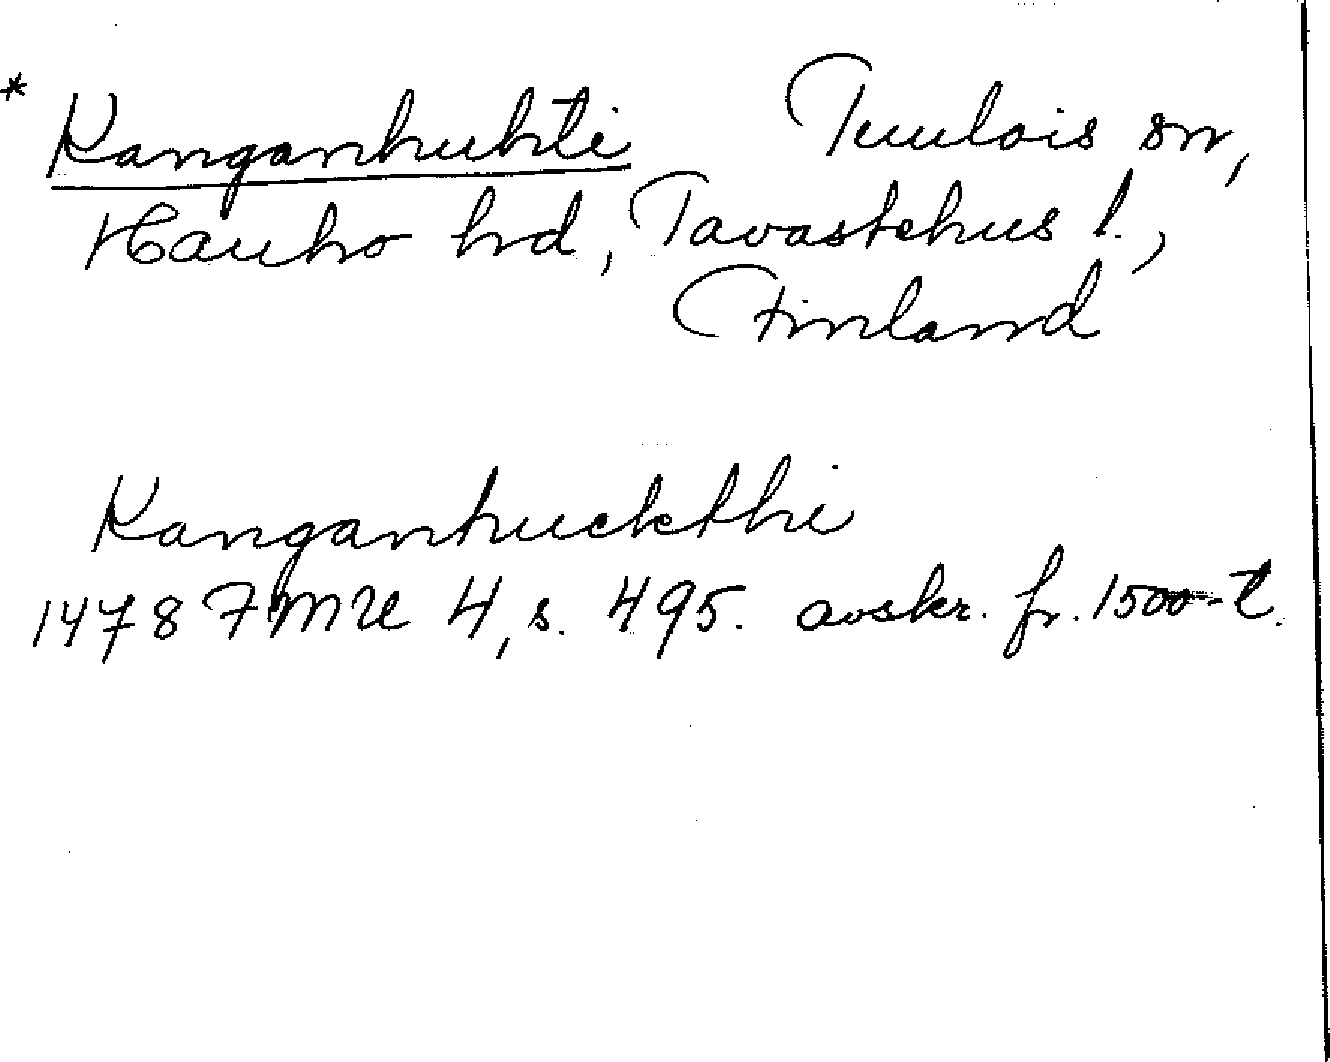 * Kanganhuhti Tuulois sn,
Hauho hd, Tavastehus l.,
Finland
Kanganhuckthi
1478 FMU 4, s. 495. avskr. fr. 1500-t.